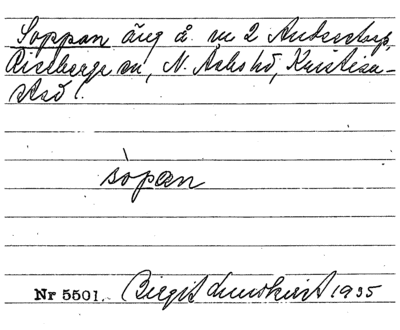 Soppan äng å nr 2 Anderstorp,
Riseberga sn, N. Åsbo hd, Kristian-
stad.
sòpan
Nr 5501. Birgit Lundkvist 1935